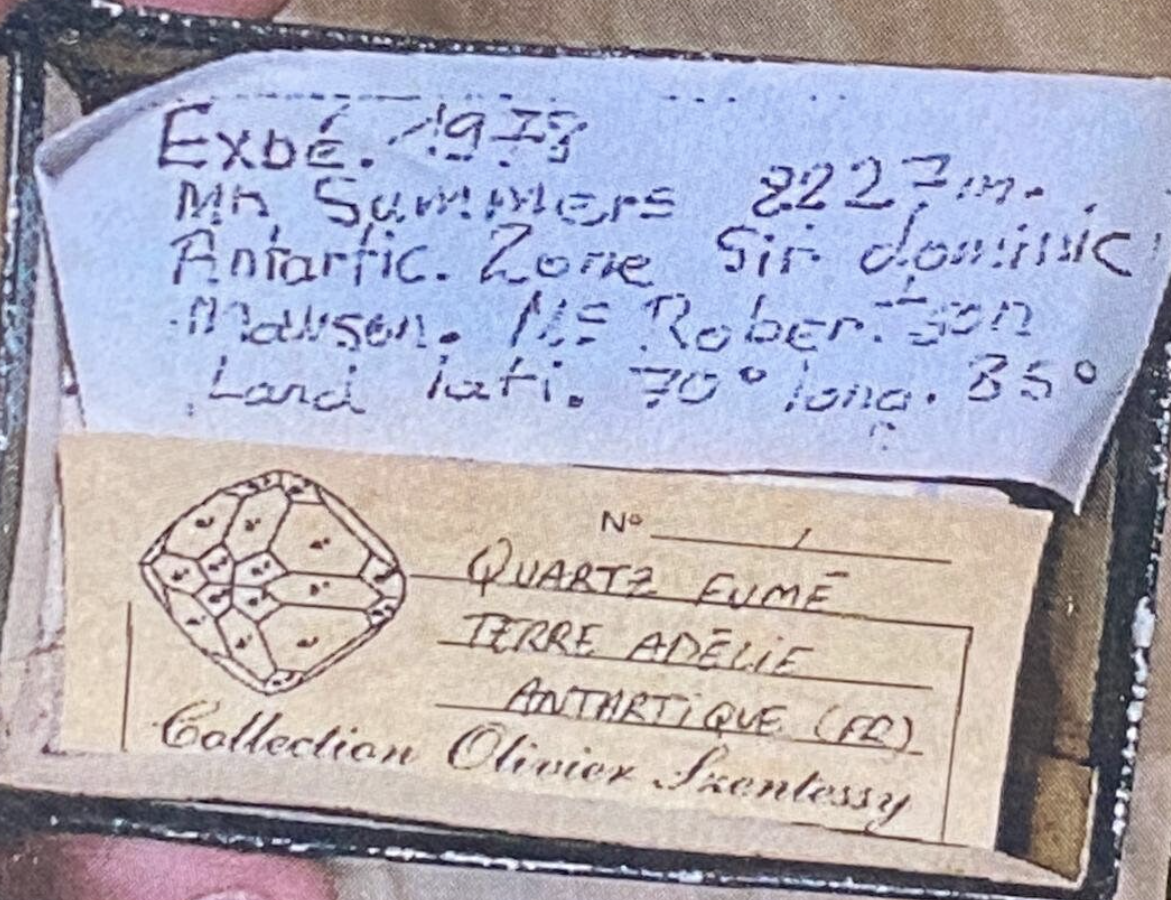 Exbé. 1973
Mn Summers 2227m.
Antartic. Zone Sir dominic
Mawson. NE Robertson
Land lati. 70° long. 35°
N° 1
QUARTZ FUMÉ
TERRE ADÉLIE
ANTARTIQUE (FR)
Collection Olivier Szentessy